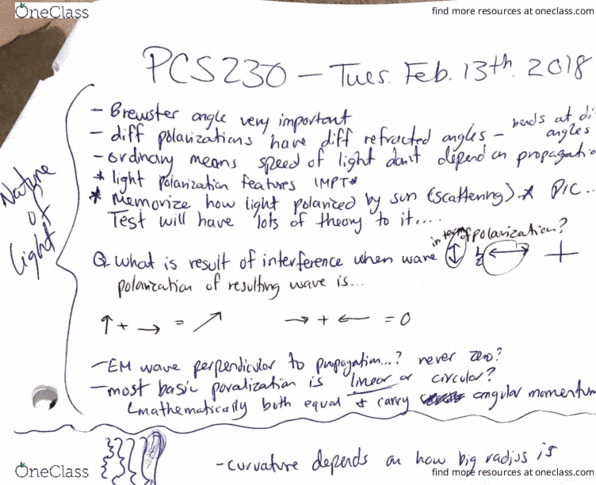 OneClass
find more resources at oneclass.com
PCS230 – Tues. Feb. 13th. 2018
Nature of light
- Brewster angle very important
- diff polarizations have diff refracted angles - bends at di
angles
- ordinary means speed of light don't depend on propagatio
* light polarization features IMPT*
* Memorize how light polarized by sun (scattering).* PIC...
Test will have lots of theory to it....
in terms of polarization?
Q what is result of interference when wave ↕ & ↔
polarization of resulting wave is...
↑ + → = ↗ → + ← = 0
- EM wave perpendicular to propagation...? never zero?
- most basic poralization is linear or circular?
mathematically both equal & carry angular momentum
- curvature depends on how big radius is
OneClass
find more resources at oneclass.com